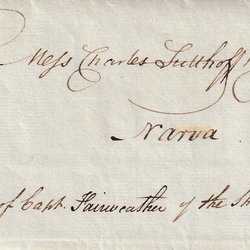 Mess Charles Sutthoff
Narva
of Capt. Fairweather of the Sh